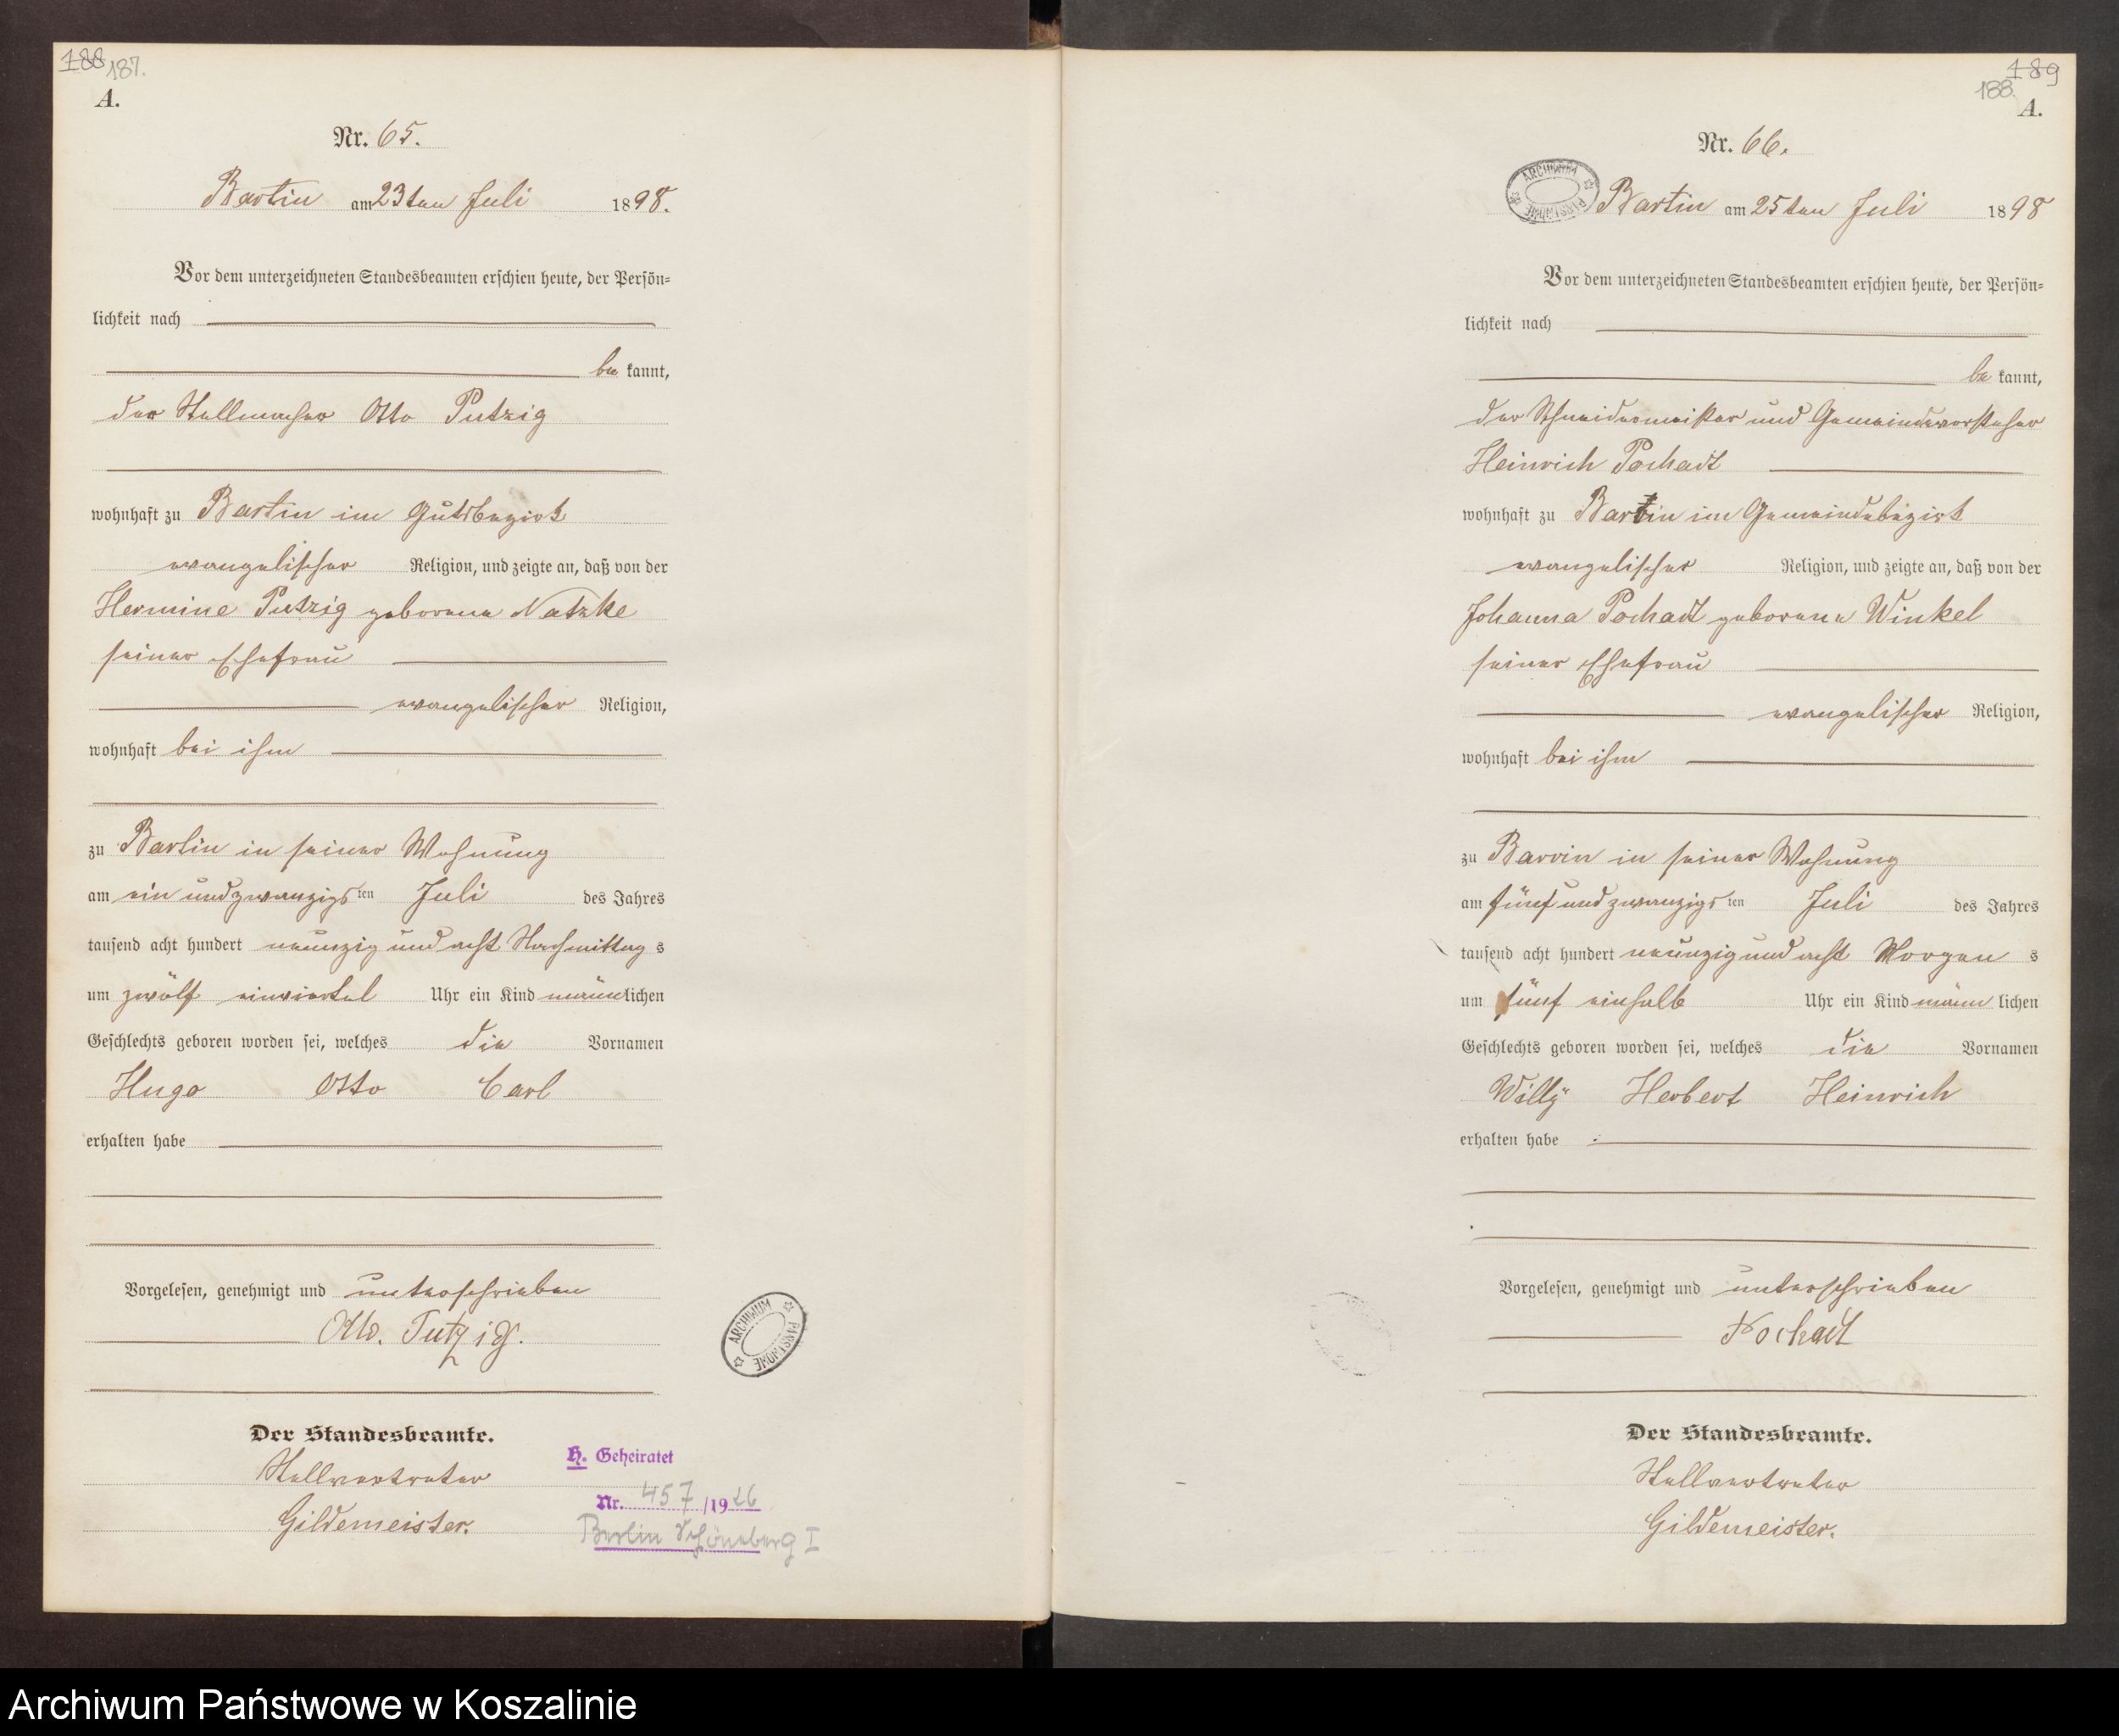 188 187.
A.
Nr. 65.
Bartin am 23ten Juli 1898.
Vor dem unterzeichneten Standesbeamten erschien heute, der Persön-
lichkeit nach
be kannt,
der Stellmacher Otto Putzig
wohnhaft zu Bartin im Gutsbezirk
evangelischer Religion, und zeigte an, daß von der
Hermine Putzig geborene Natzke
seiner Ehefrau
evangelischer Religion,
wohnhaft bei ihm
zu Bartin in seiner Wohnung
am ein und zwanzigsten Juli des Jahres
tausend acht hundert neunzig und acht Nachmittag s
um zwölf einviertel Uhr ein Kind männlichen
Geschlechts geboren worden sei, welches die Vornamen
Hugo Otto Carl
erhalten habe
Vorgelesen, genehmigt und unterschrieben
Otto. Putzig.
Der Standesbeamte.
Stellvertreter
Gildemeister.
H. Geheiratet
Nr. 457/1926
Berlin Schöneberg I
ARCHIWUM PAŃSTWOWE
189
188.
A.
Nr. 66.
ARCHIWUM PAŃSTWOWE
Bartin am 25ten Juli 1898
Vor dem unterzeichneten Standesbeamten erschien heute, der Persön-
lichkeit nach
be kannt,
der Schneidermeister und Gemeindevorsteher
Heinrich Pochadt
wohnhaft zu Bartin im Gemeindebezirk
evangelischer Religion, und zeigte an, daß von der
Johanna Pochadt geborene Winkel
seiner Ehefrau
evangelischer Religion,
wohnhaft bei ihm
zu Barvin in seiner Wohnung
am fünf und zwanzigsten Juli des Jahres
tausend acht hundert neunzig und acht Morgen s
um fünf einhalb Uhr ein Kind männ lichen
Geschlechts geboren worden sei, welches die Vornamen
Willy Herbert Heinrich
erhalten habe
Vorgelesen, genehmigt und unterschrieben
Pochadt
Der Standesbeamte.
Stellvertreter
Gildemeister.
Archiwum Państwowe w Koszalinie